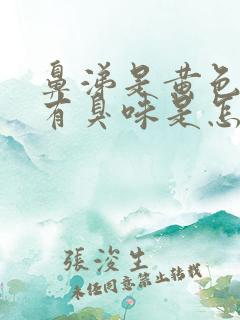 鼻涕是黄色
有臭味是怎
張浚生
未经同意禁止转载